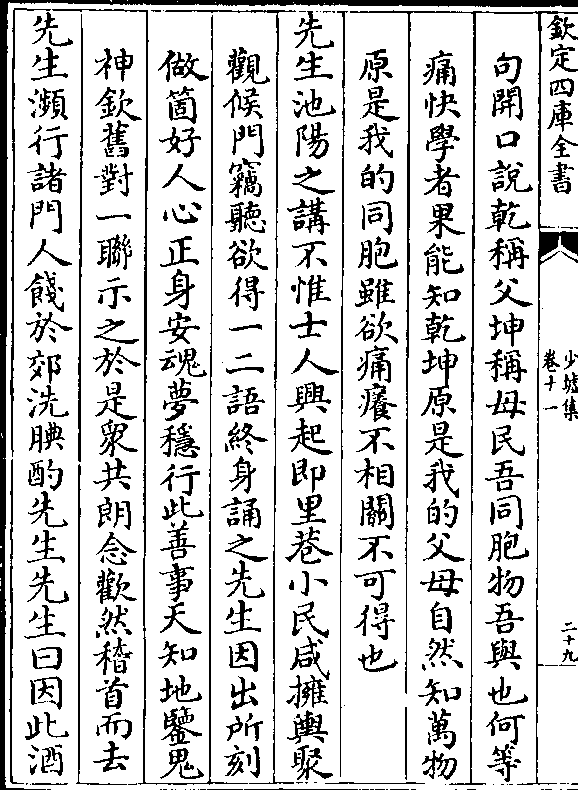 欽定四庫全書
少墟集
卷十一
二十九
句開口說乾稱父坤稱母民吾同胞物吾與也何等
痛快學者果能知乾坤原是我的父母自然知萬物
原是我的同胞雖欲痛癢不相關不可得也
先生池陽之講不惟士人興起即里巷小民咸擁輿聚
觀候門竊聽欲得一二語終身誦之先生因出所刻
做箇好人心正身安魂夢穩行此善事天知地鑒鬼
神欽舊對一聯示之於是衆共朗念歡然稽首而去
先生瀕行諸門人餞於郊洗腆酌先生先生曰因此酒